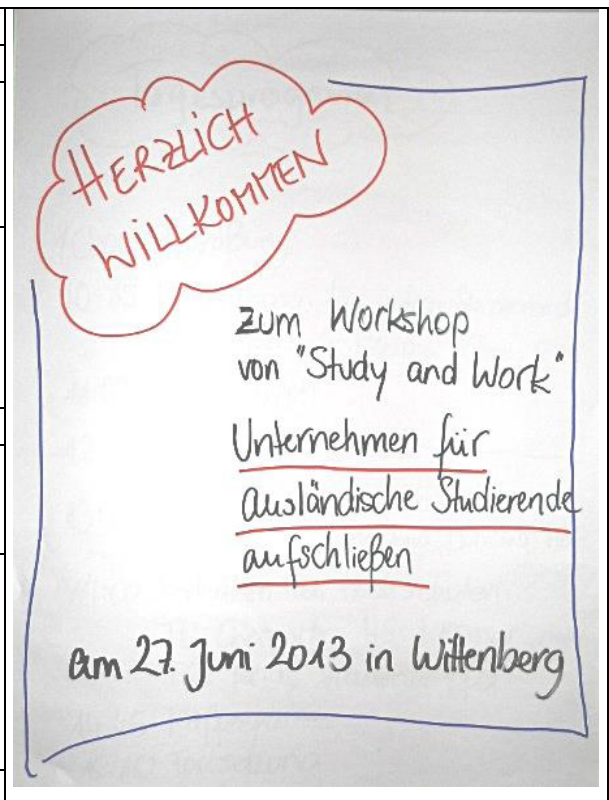 HERZLICH
WILLKOMMEN
zum Workshop
von "Study and Work"
Unternehmen für
ausländische Studierende
aufschließen
am 27. Juni 2013 in Wittenberg